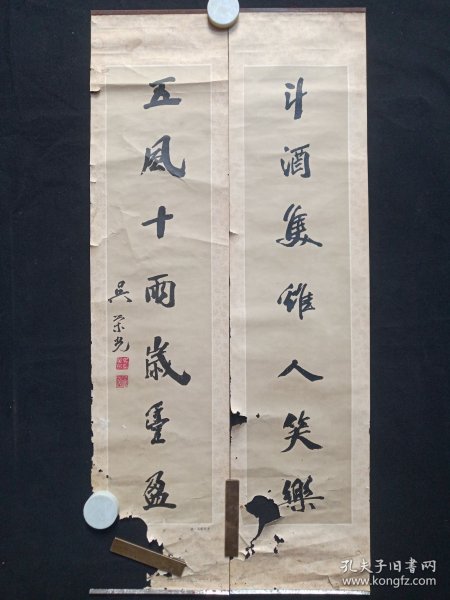 斗酒隻雞人笑樂
五風十雨歲豐盈
吳榮光
孔夫子旧书网
www.kongfz.com